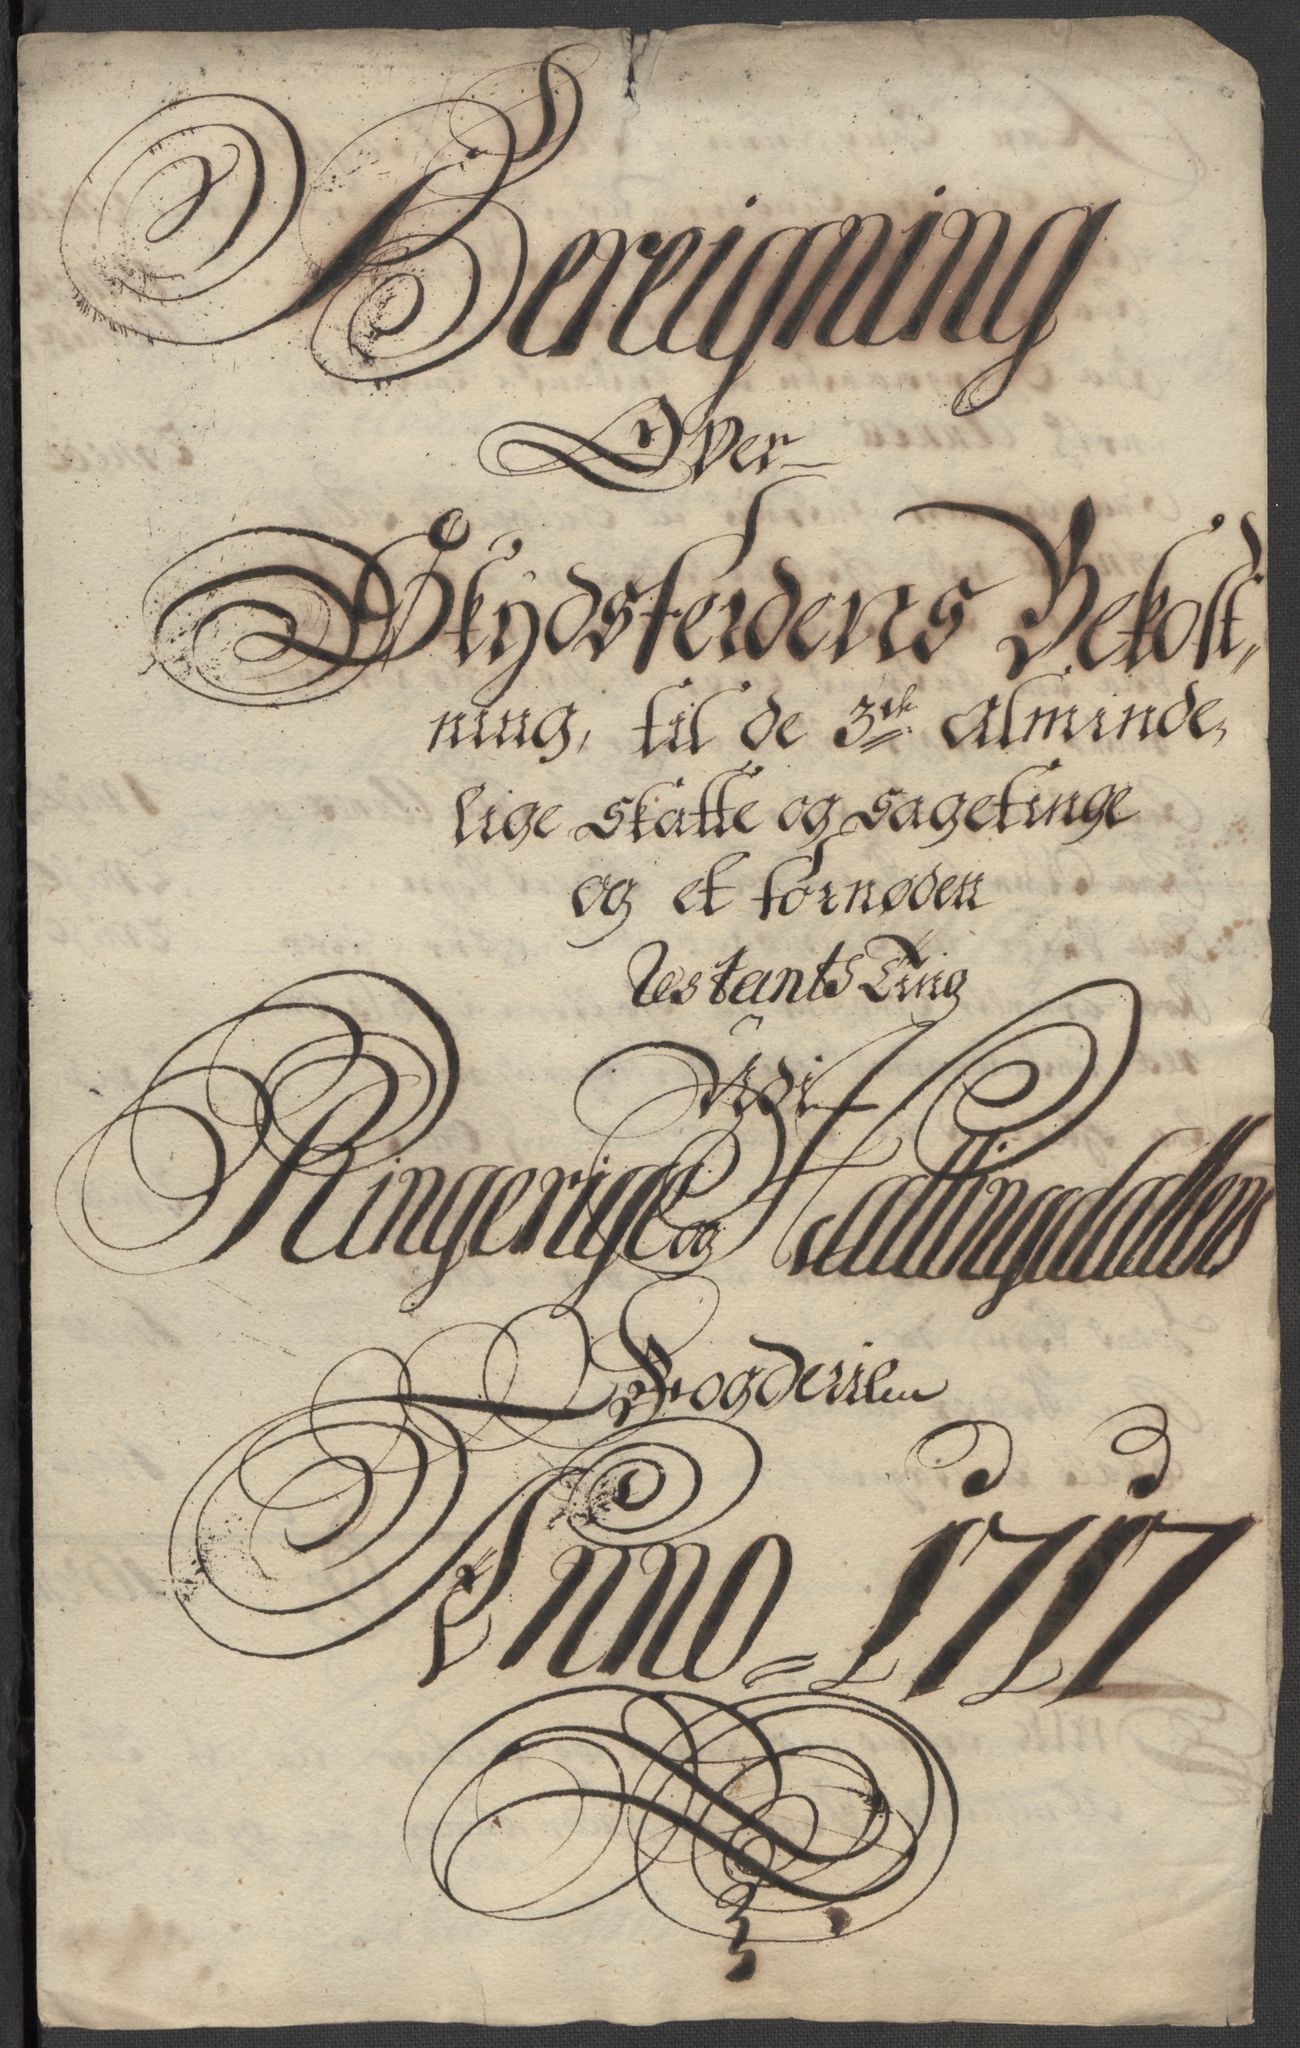 Bereigning
Over
Skydsferdens Bekost-
ning, til de 3de Alminde,
lige skatte og sagetinge
og et fornøden
Restants Ting
Udi
Ringerige og Hallingdallens
Fogderie
Anno = 1717